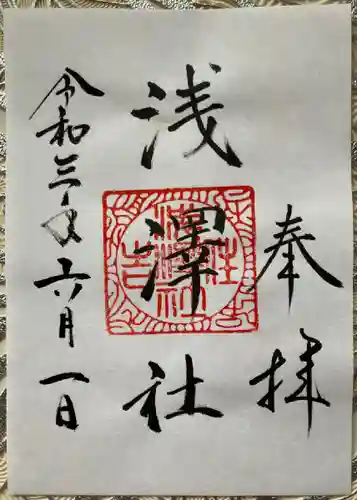 奉拝
浅澤社
令和三年六月一日